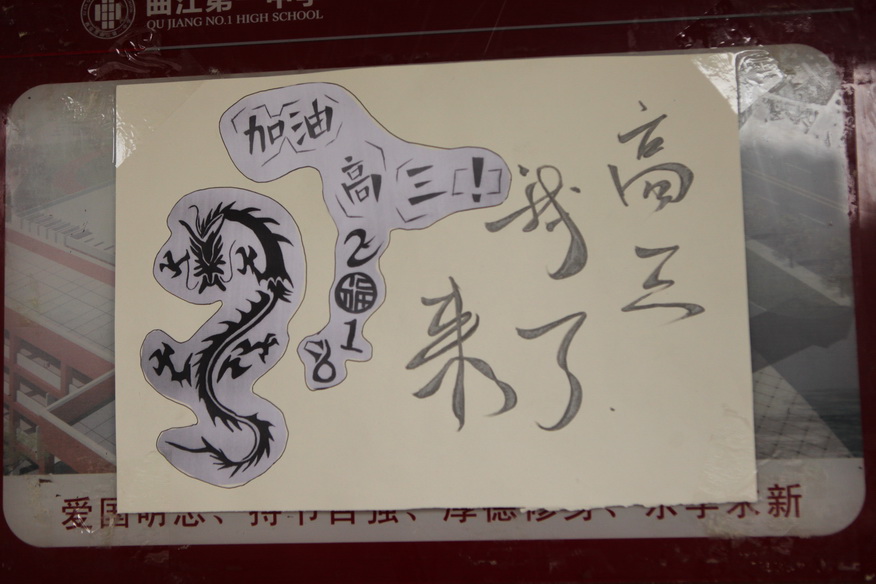 曲江第一中学
QU JIANG NO.1 HIGH SCHOOL
加油
高三!
2福18
高三
我来了
爱国明志、持节自强、厚德修身、乐学求新